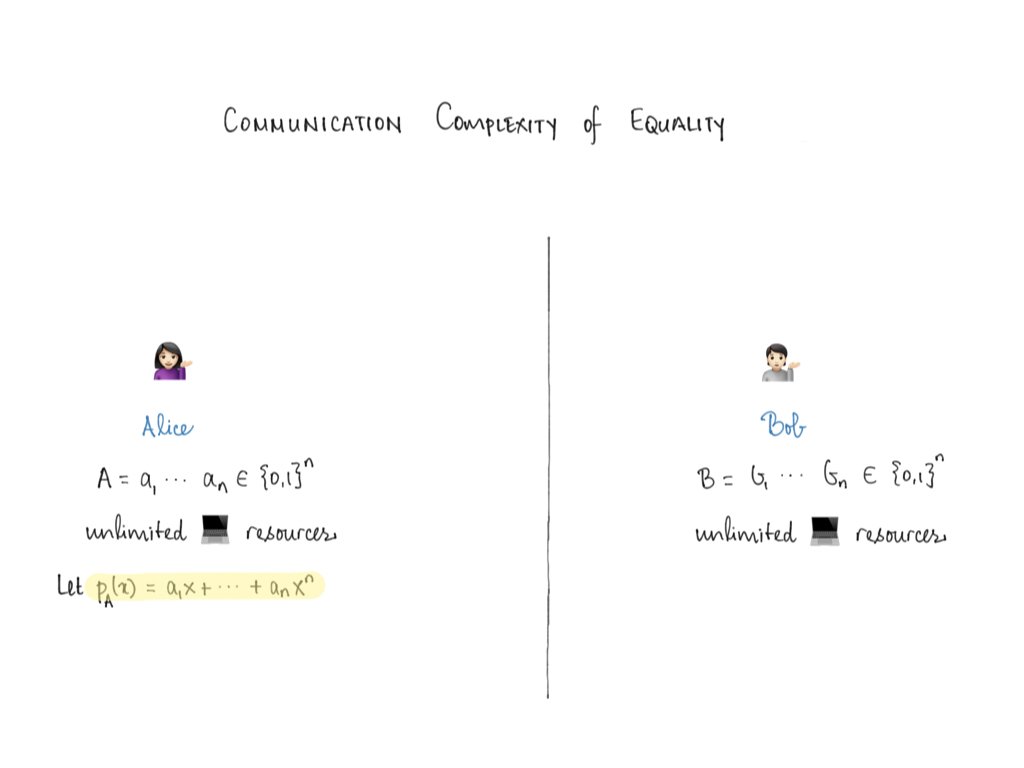 COMMUNICATION COMPLEXITY of EQUALITY
Alice
A = a₁ ⋯ aₙ ∈ {0,1}ⁿ
unlimited 💻 resources
Let p_A(x) = a₁x + ⋯ + aₙxⁿ
Bob
B = b₁ ⋯ bₙ ∈ {0,1}ⁿ
unlimited 💻 resources